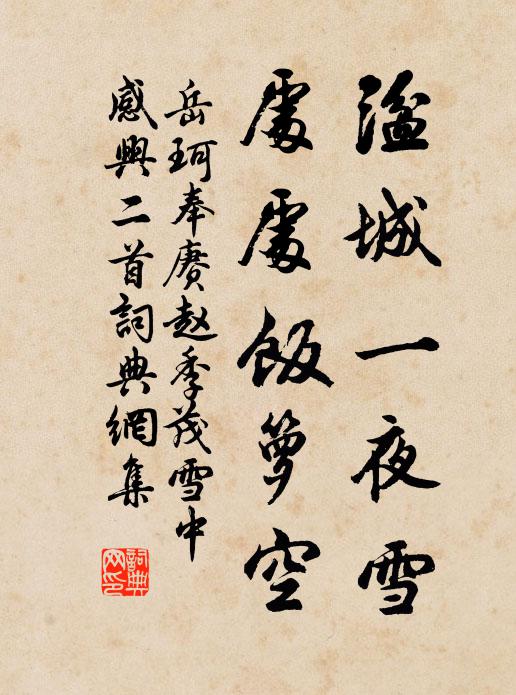 溢城一夜雪
處處飯籮空
岳珂奉賡趙季茂雪中
感興二首詞典網集
詞典
网印